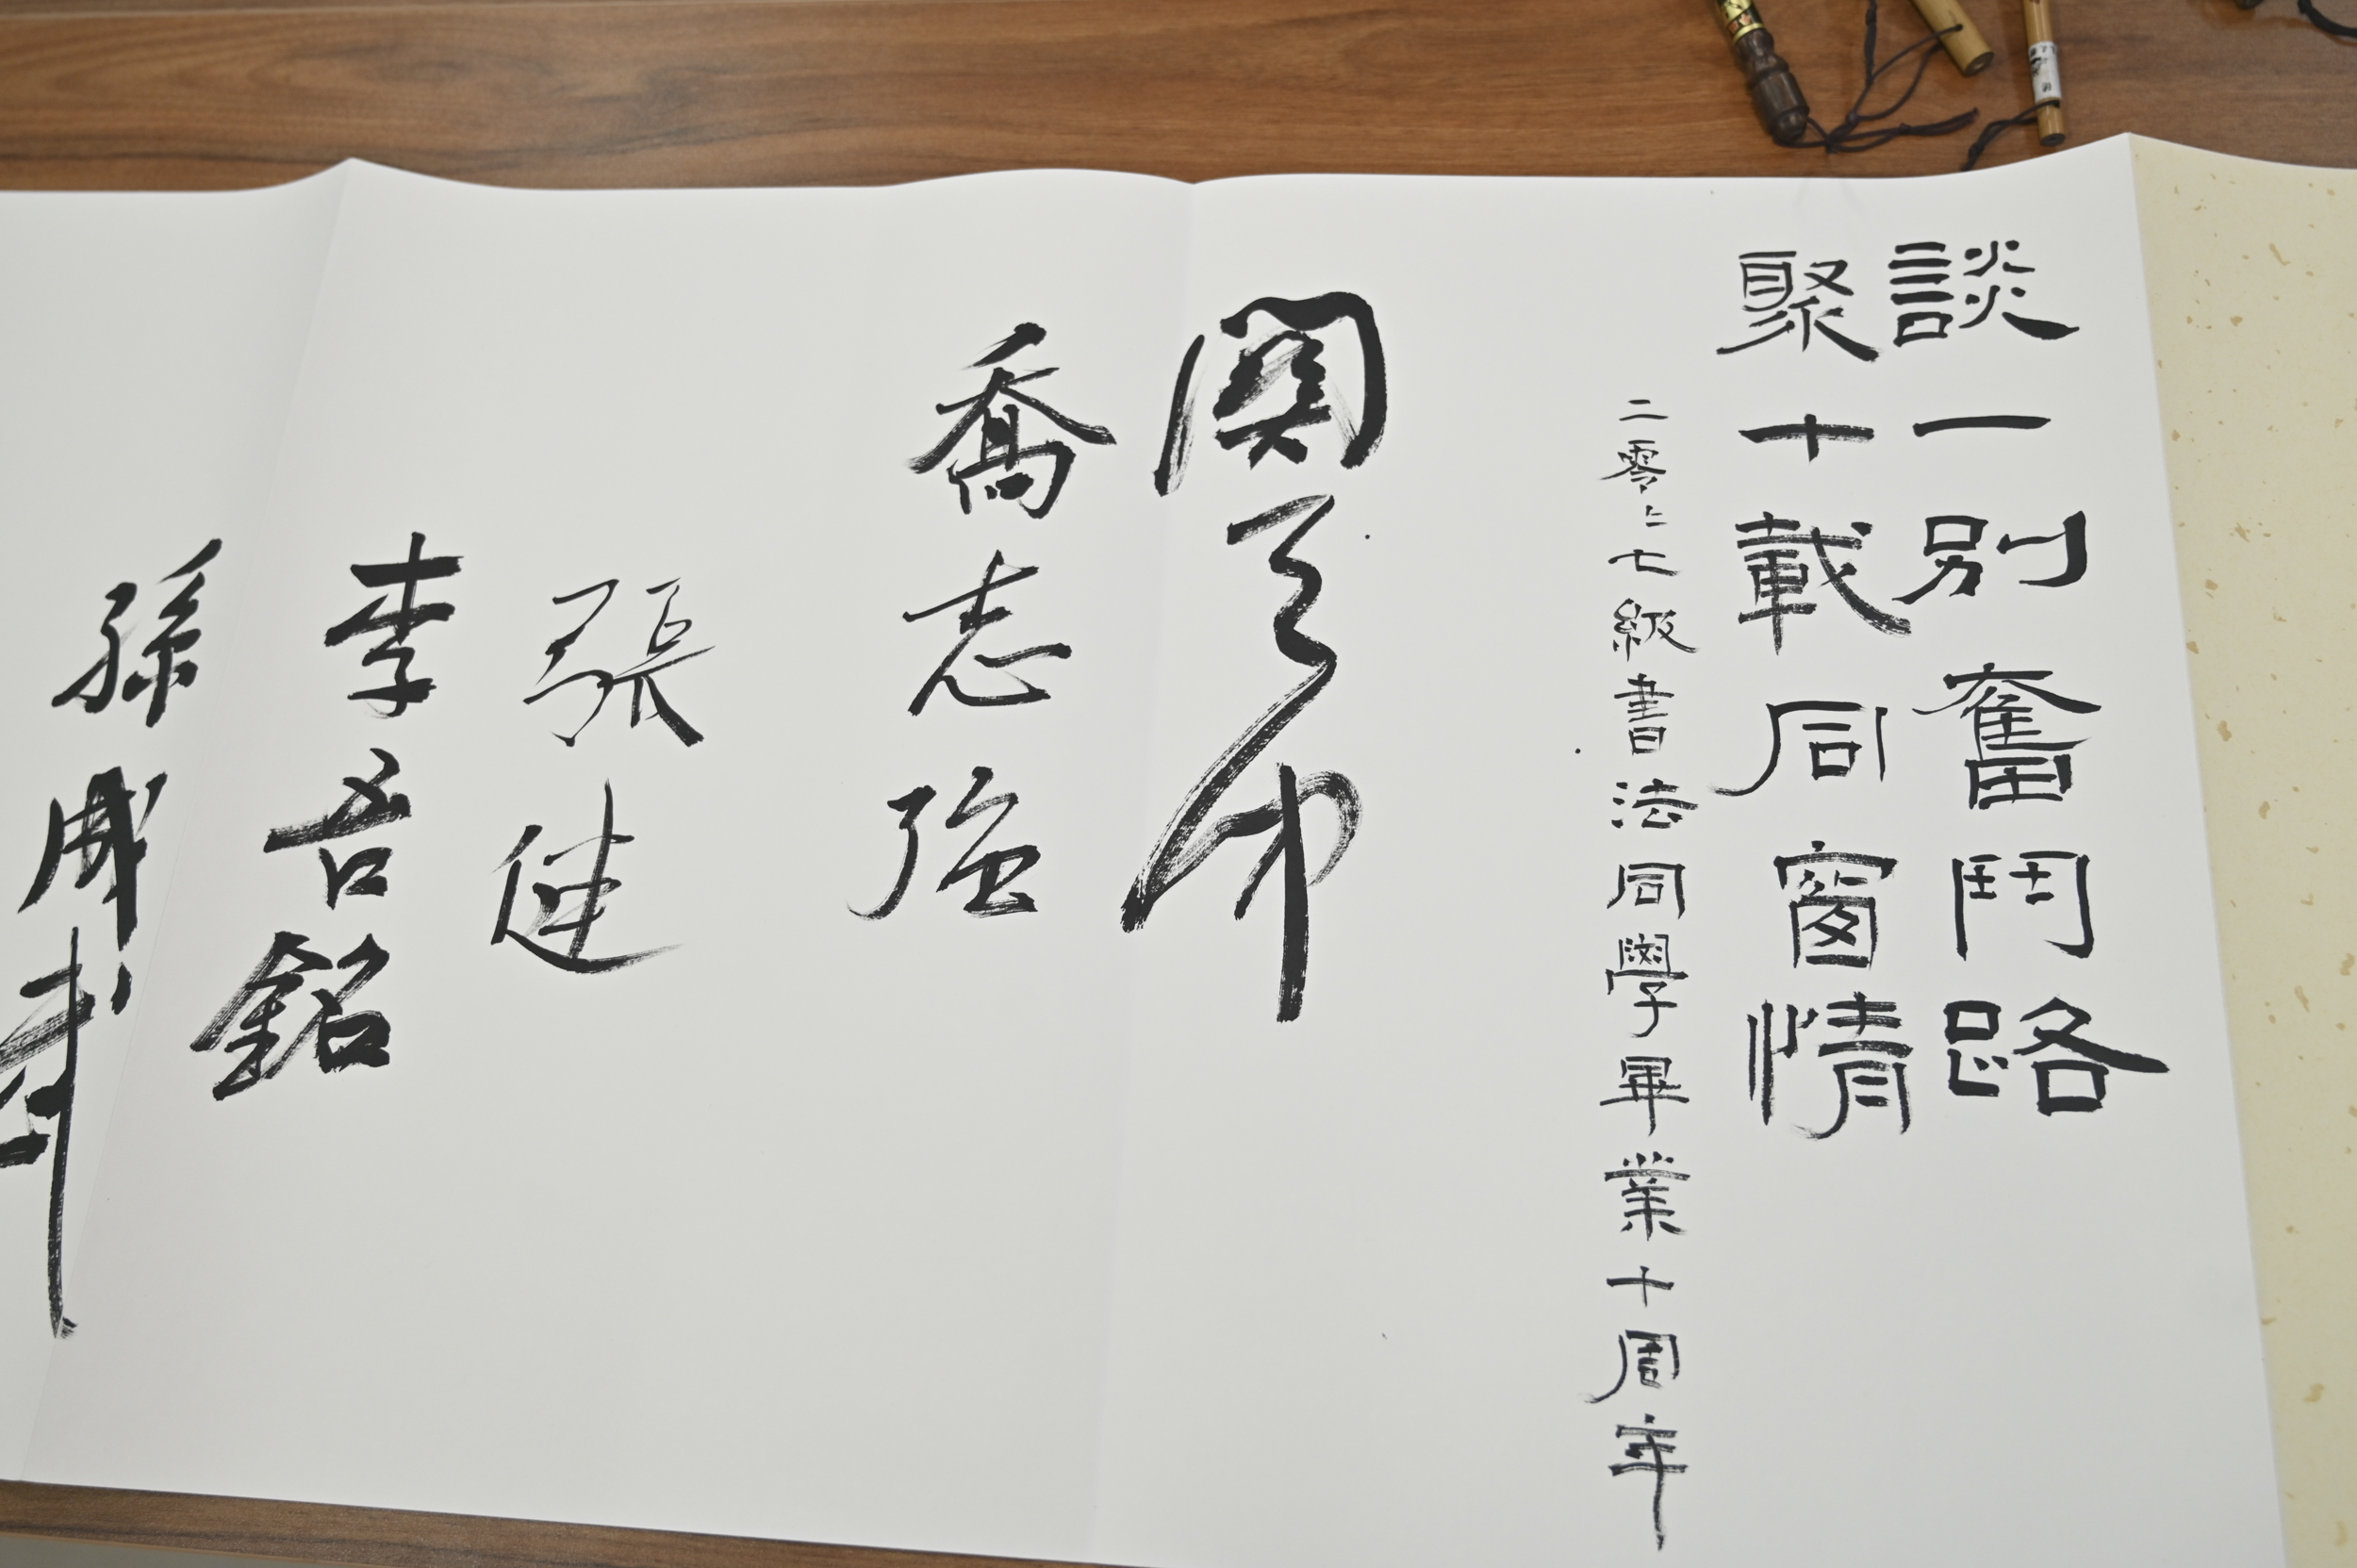 談一別奮鬥路
聚十載同窗情
二零〻七級書法同學畢業十周年
喬志強
張健
李吾銘
孫成